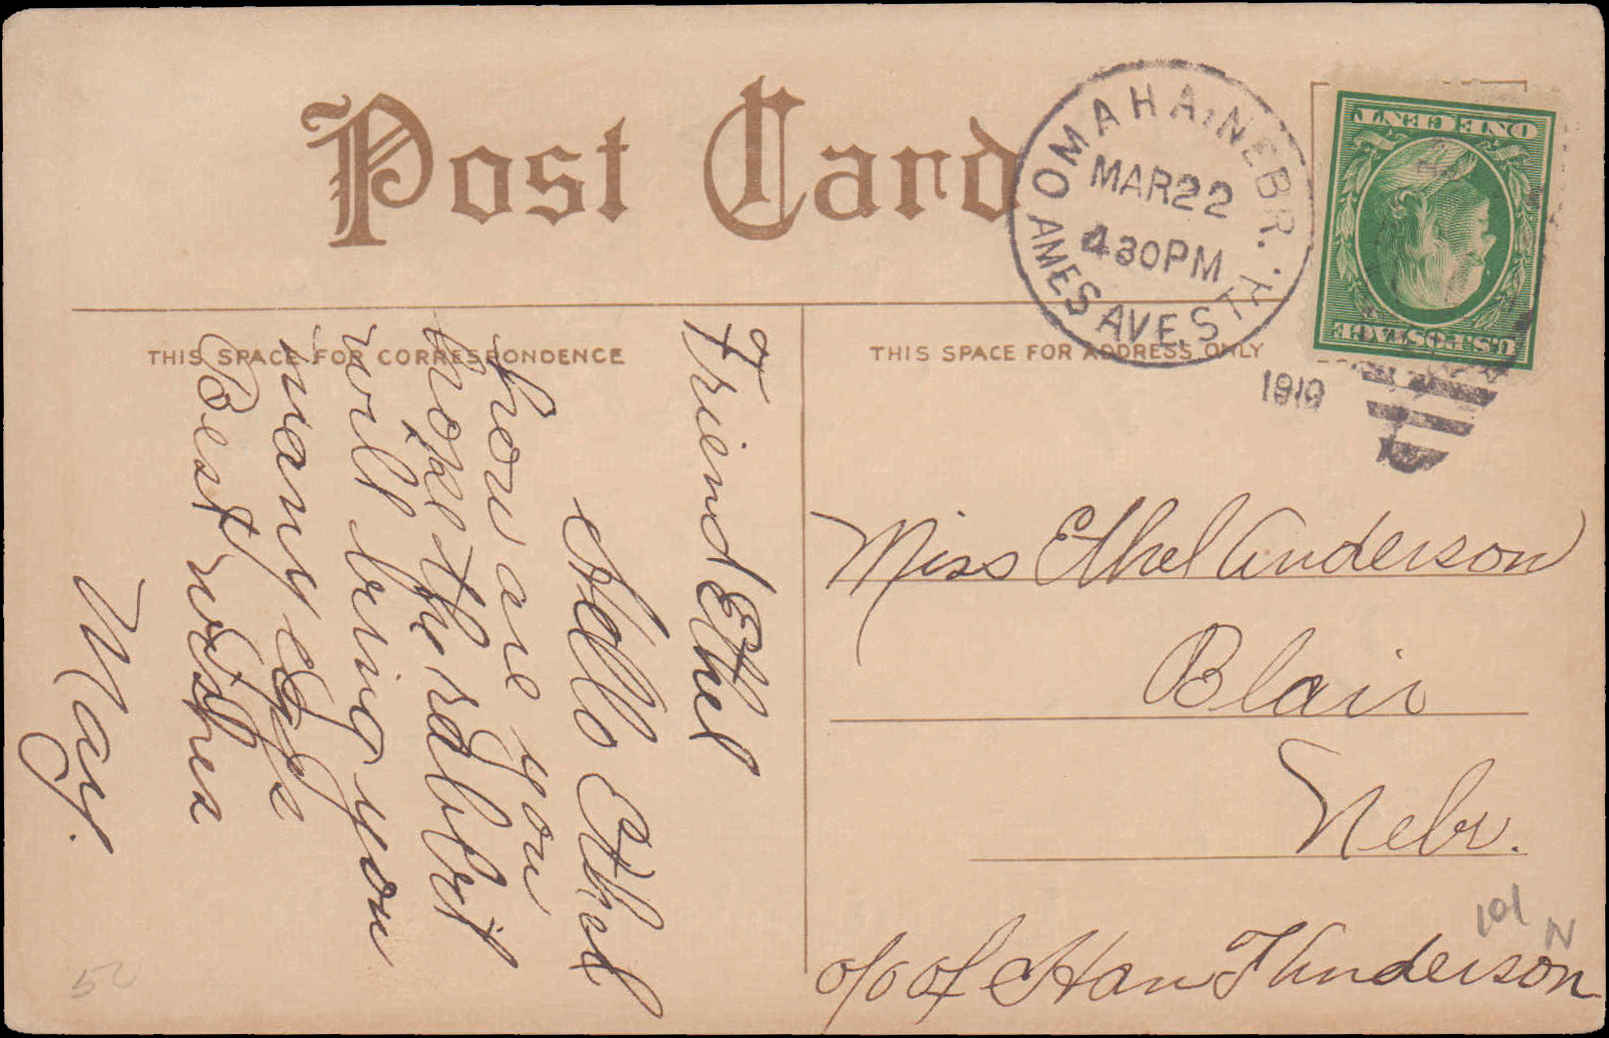 Post Card
OMAHA, NEBR.
MAR 22
430PM
AMES AVE. STA.
1910
ONE CENT
U.S. POSTAGE
THIS SPACE FOR CORRESPONDENCE
THIS SPACE FOR ADDRESS ONLY
Friend Ethel
Hello Ethel
how are you
hope the rabbit
will bring you
many eggs
Best wishes
May.
Miss Ethel Anderson
Blair
Nebr.
c/o of Han
101
N
50